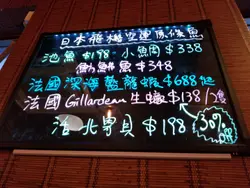 日本飛機空運勝候魚
池魚$198·小鯛$338
魷鮮魚$348
法國深海藍龍蝦$688起
法國Gillardeau生蠔$138/1隻
活北寄貝$198
30%off